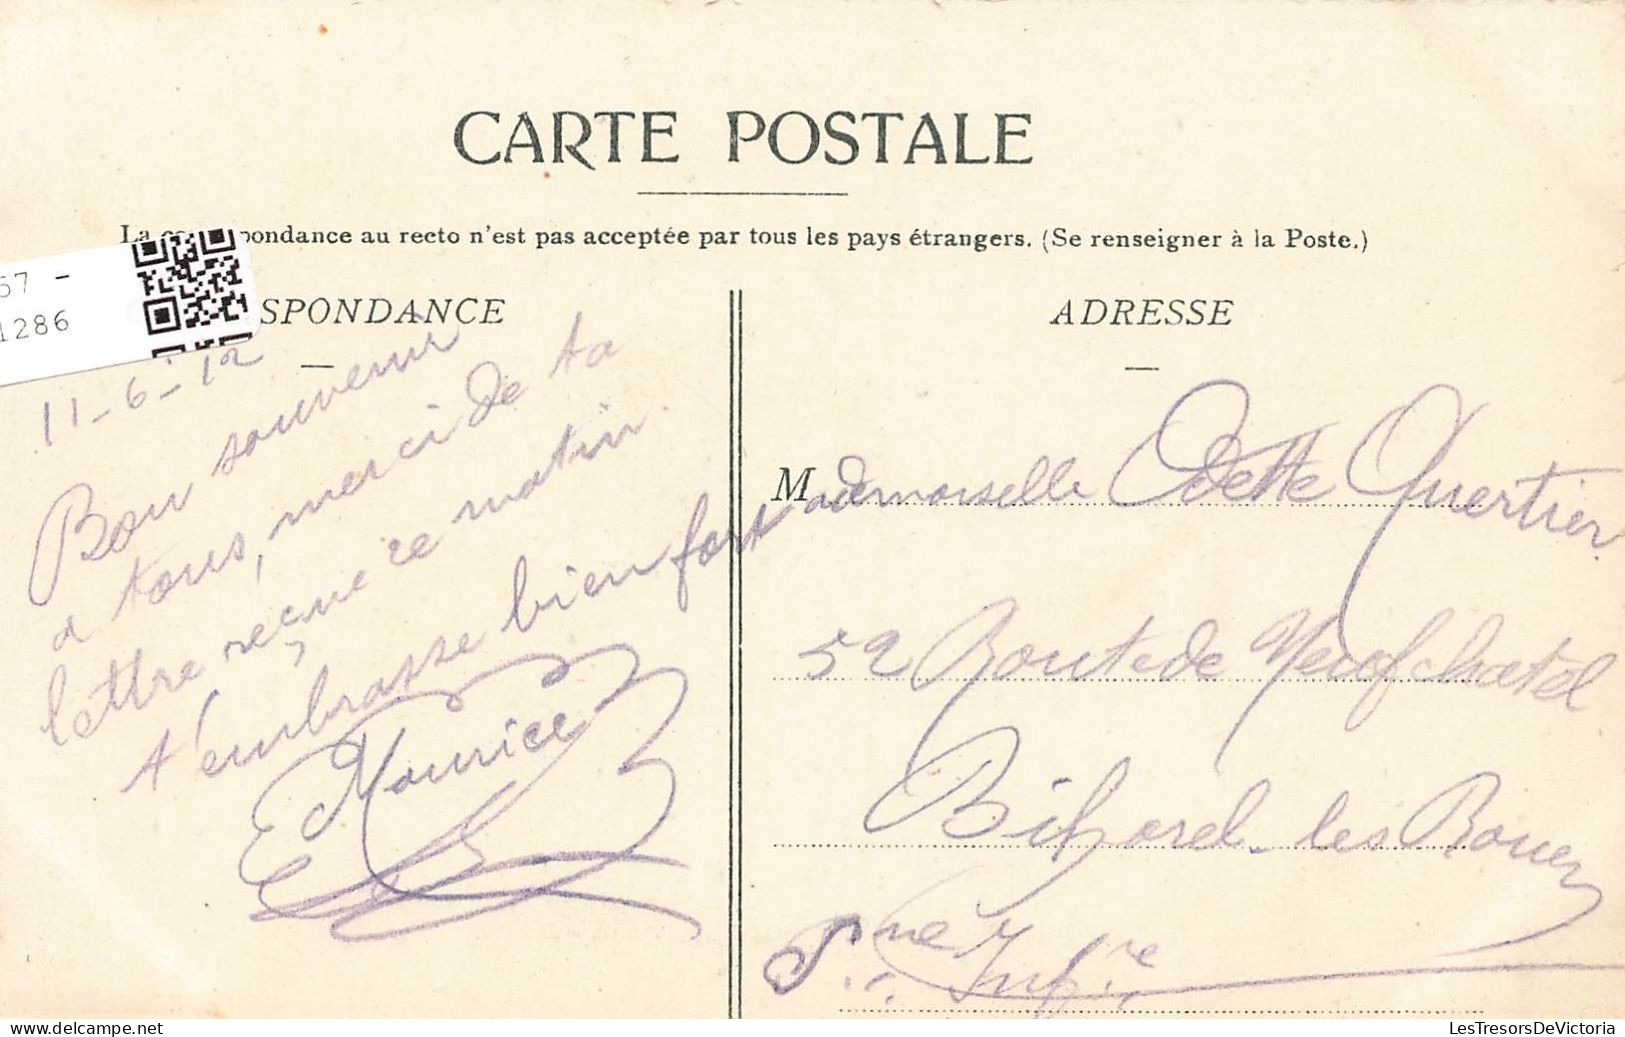 CARTE POSTALE
La pondance au recto n'est pas acceptée par tous les pays étrangers. (Se renseigner à la Poste.)
57 -
1286
SPONDANCE
11-6-12
Bon souvenir
a tous, merci de ta
lettre reçue ce matin.
t'embrasse bien fort
Maurice
ADRESSE
Mademoiselle Odette Quertier.
52 Route de Neufchatel
Bihorel-les Rouen
S.ne Infre
LesTresorsDeVictoria